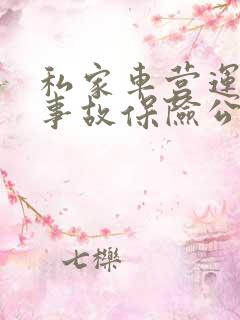 私家車营運
事故保險公
七櫟